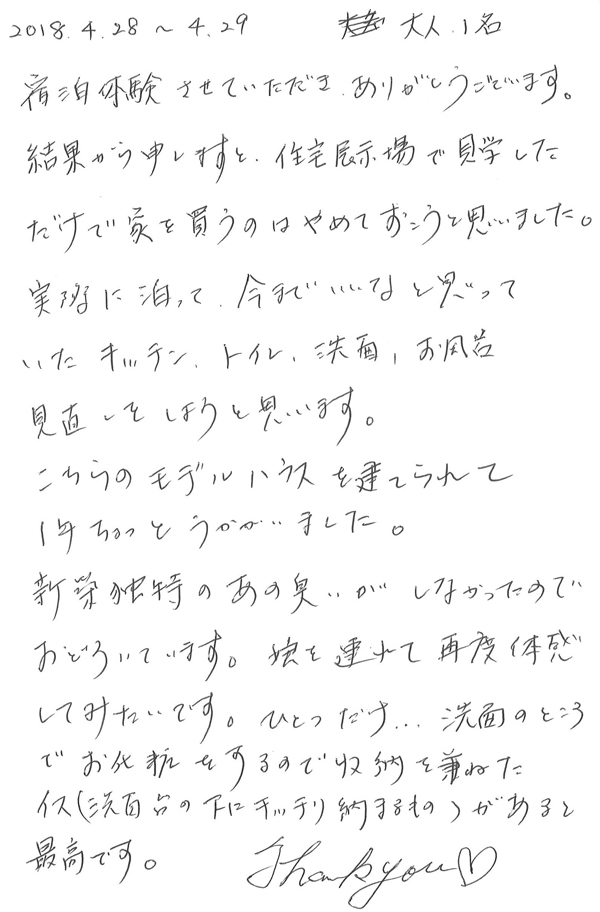 2018.4.28 ~ 4.29 大人1名
宿泊体験させていただき、ありがとうございます。
結果から申しますと、住宅展示場で見学した
だけで家を買うのはやめておこうと思いました。
実際に泊って、今までいいなと思って
いたキッチン、トイレ、洗面、お風呂
見直しをしようと思います。
こちらのモデルハウスを建てられて
1年ちょっととうかがいました。
新築独特のあの臭いがしなかったので
おどろいています。娘を連れて再度体感
してみたいです。ひとつだけ...洗面のところ
でお化粧をするので収納を兼ねた
イス(洗面台の下にキッチリ納まるもの)があると
最高です。 Thank you♡